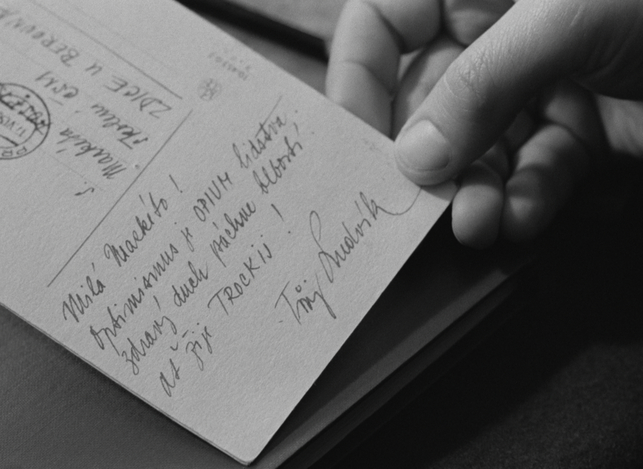 Milá Markéto!
Optimismus je OPIUM lidstva!
zdravý duch páchne blbostí!
ať žije TROCKIJ!
Tvůj Ludvík
S.
Markéta
školení ČSM
ZDICE U BEROUNA